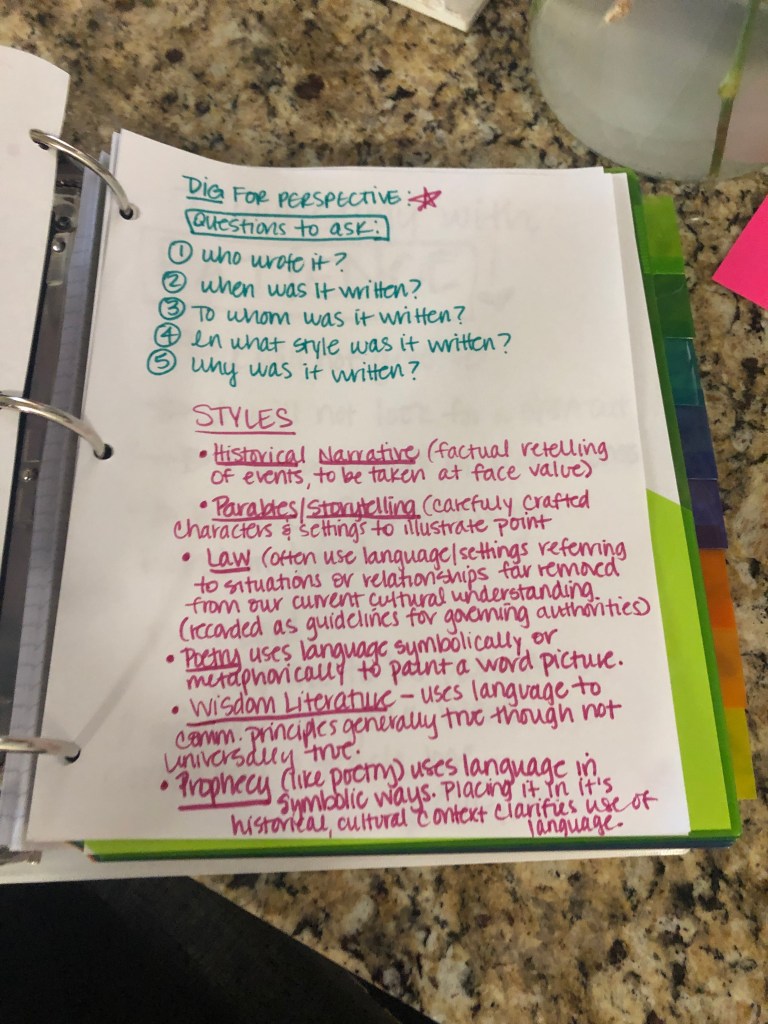 DIG FOR PERSPECTIVE:
Questions to ask:
① who wrote it?
② when was it written?
③ To whom was it written?
④ In what style was it written?
⑤ why was it written?
STYLES
• Historical Narrative (factual retelling
of events, to be taken at face value)
• Parables/Storytelling (carefully crafted
characters & settings to illustrate point
• Law (often use language/settings referring
to situations or relationships far removed
from our current cultural understanding.
(recorded as guidelines for governing authorities)
• Poetry uses language symbolically or
metaphorically to paint a word picture.
• Wisdom Literature – uses language to
comm. principles generally true though not
universally true.
• Prophecy (like poetry) uses language in
symbolic ways. Placing it in it's
historical, cultural context clarifies use of
language.